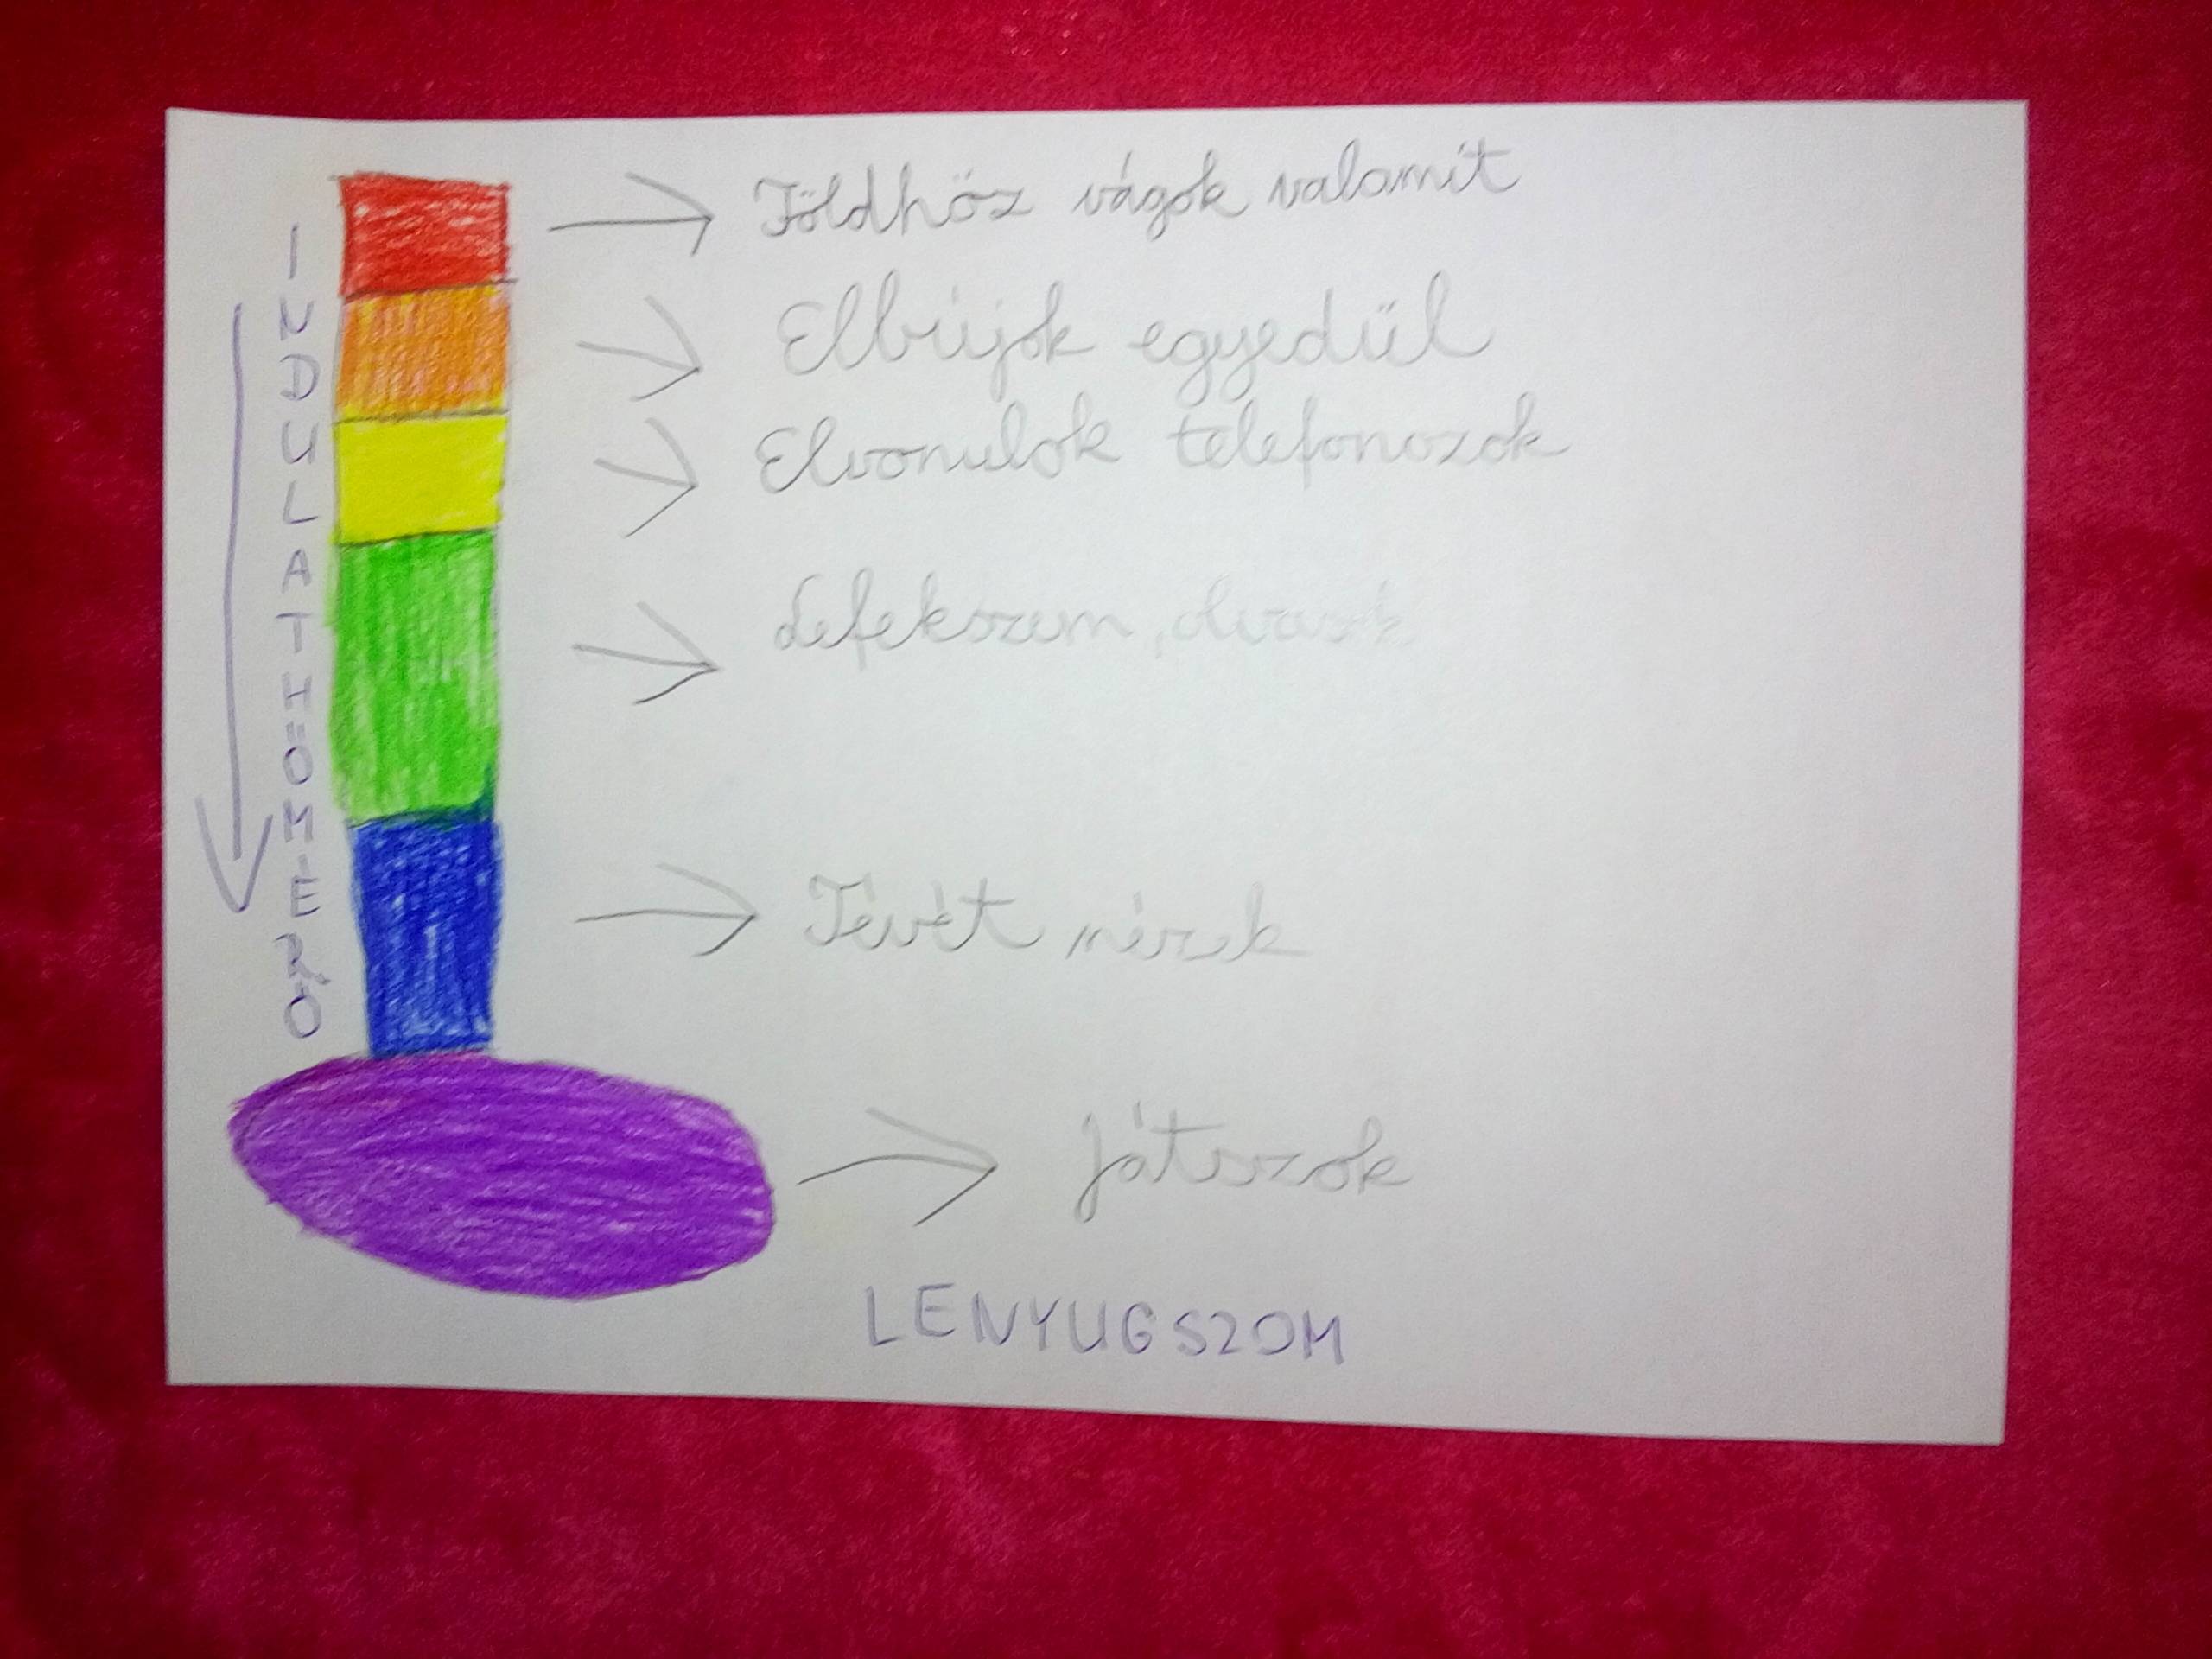 INDULATHŐMÉRŐ
Földhöz vágok valamit
Elbújok egyedül
Elvonulok telefonozok
Lefekszem, olvasok
Tévét nézek
Játszok
LENYUGSZOM